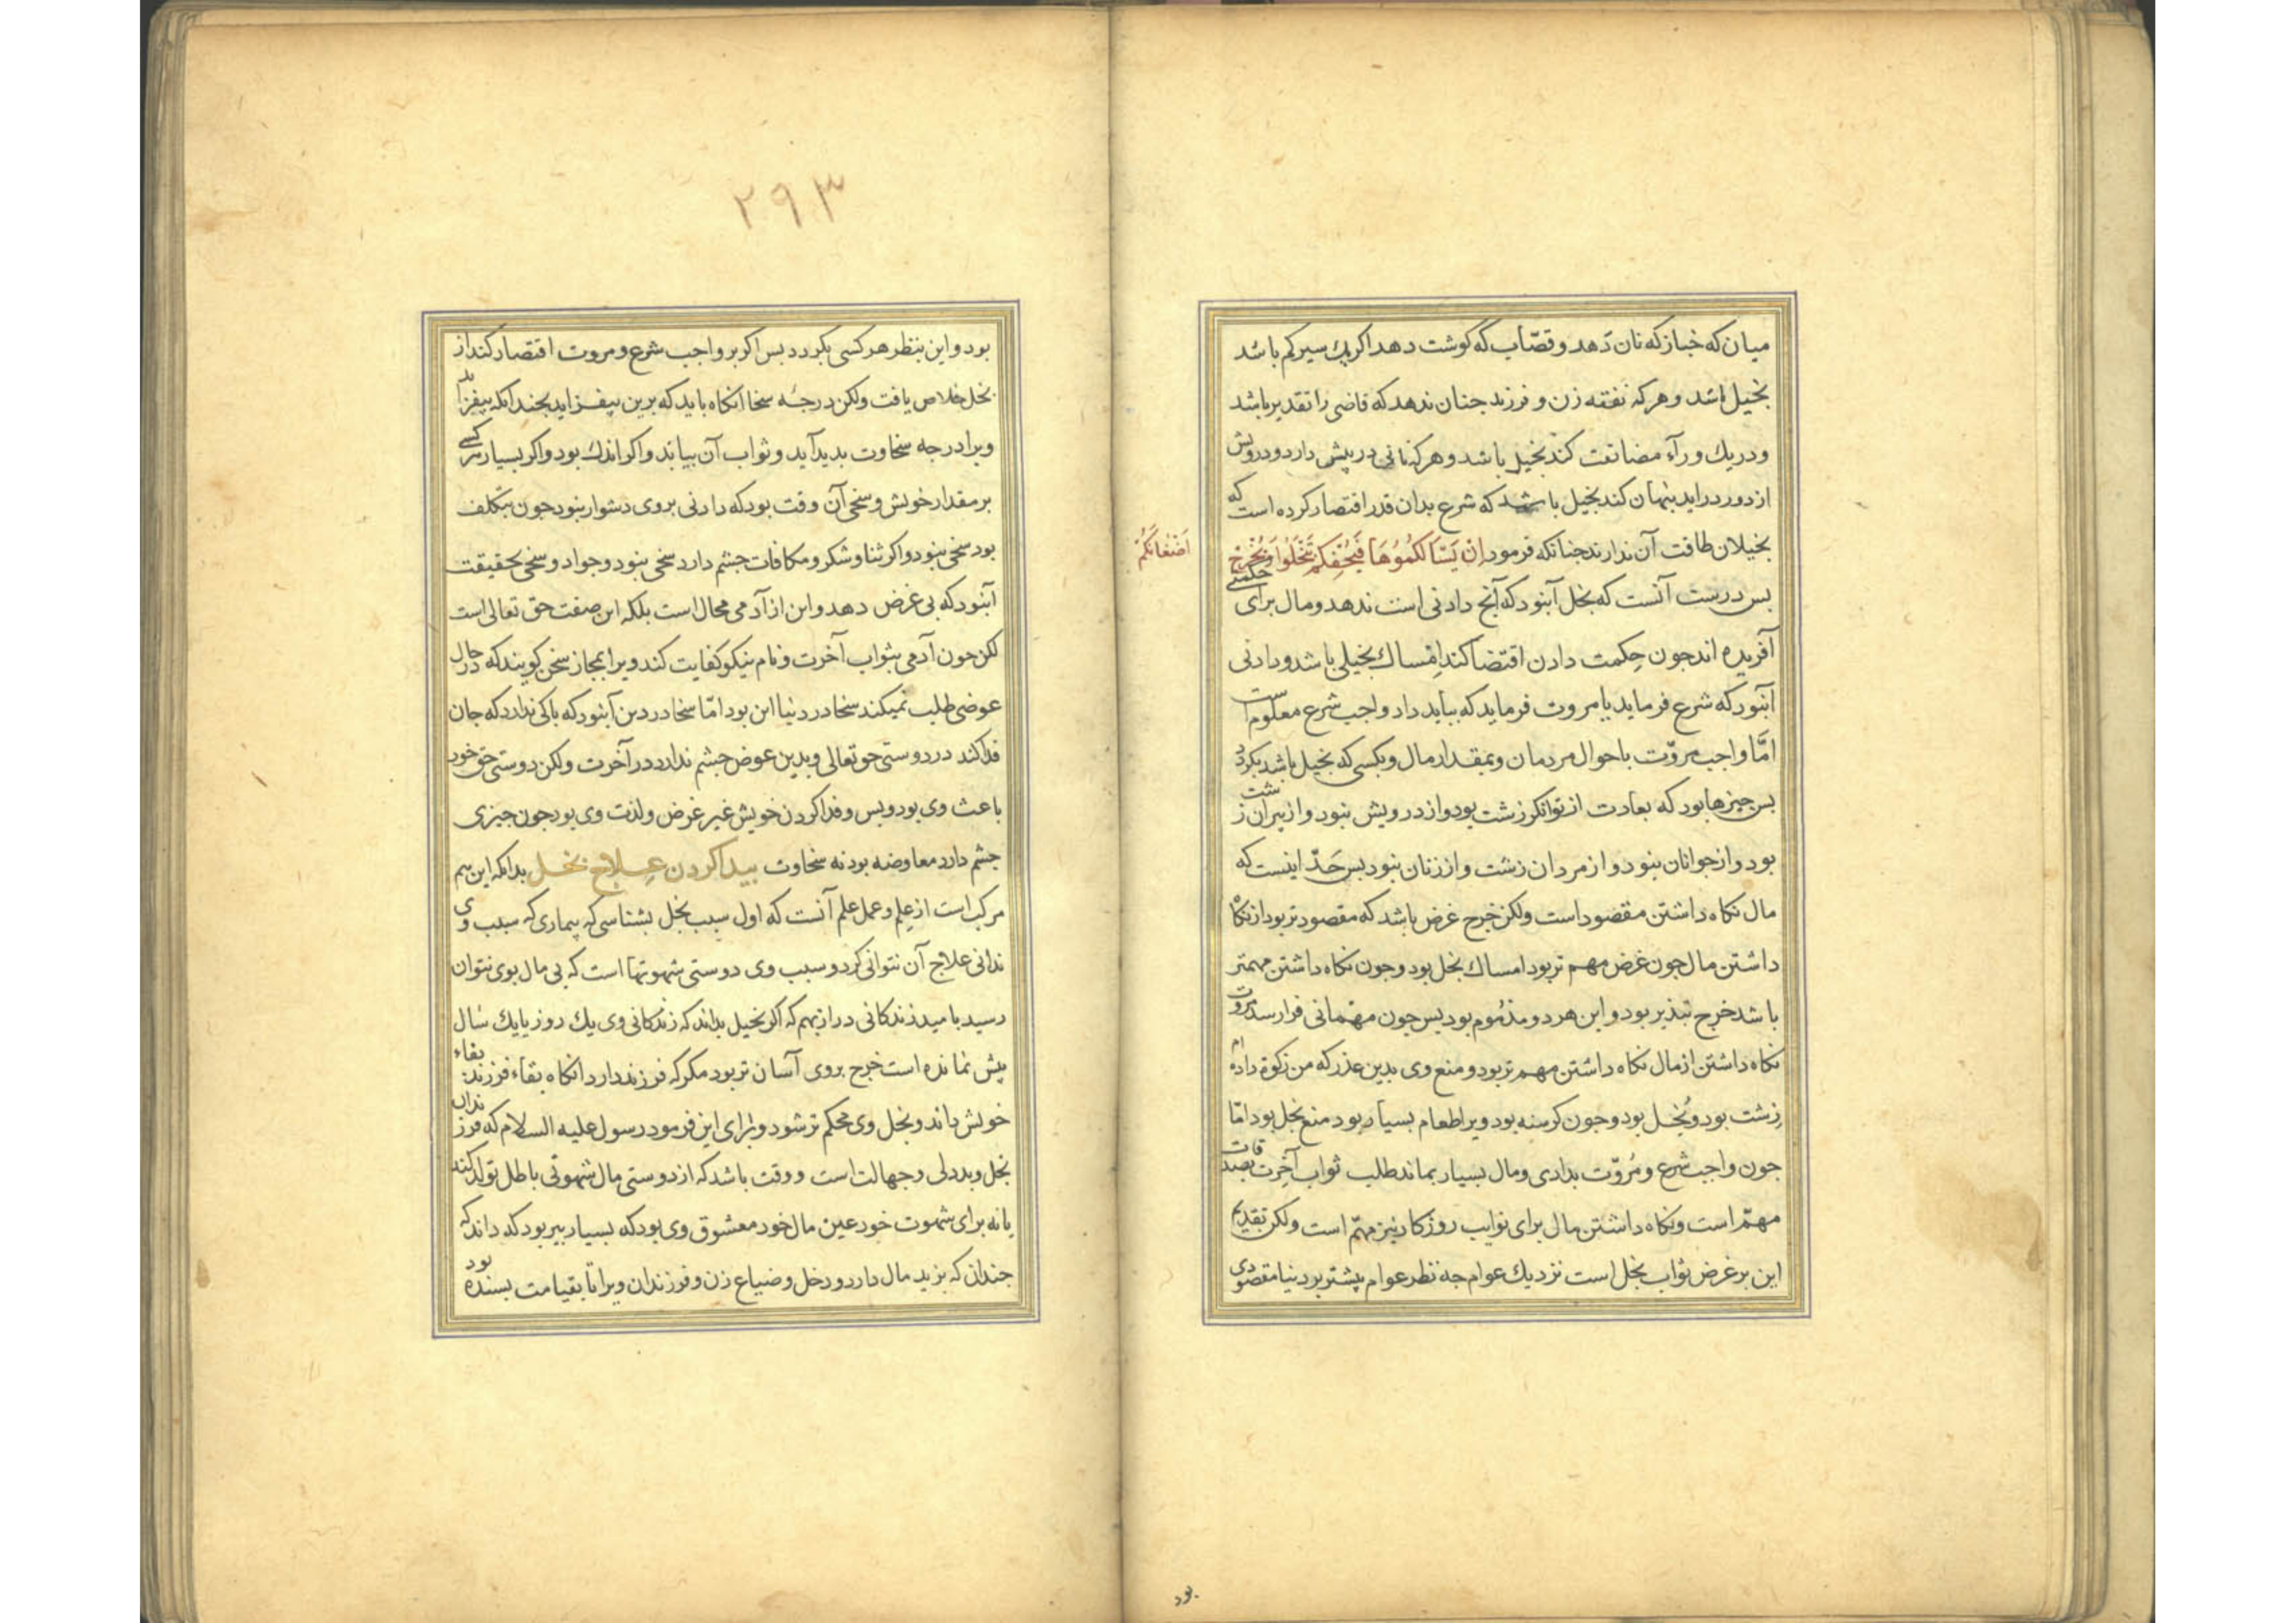 میان که خباز که نان دهد و قصّاب که گوشت دهد اگر یک سیر کم باشد
بخیل باشد و هر که نفقه زن و فرزند جنان ندهد که قاضی را تقدیر باشد
و در یک وراء مضانقت کند بخیل باشد و هر که نانی در پیش دارد و درویش
از دور دراید پنهان کند بخیل باشد که شرع بدان قدر اقتصار کرده است که
بخیلان طاقت آن ندارند جنانکه فرمود اِنْ یَسْاَلْکُمُوُهَا فَیُحْفِکُمْ تَبْخَلُوا وَیُخْرِجْ
اَضْغَانَکُمْ
بس درست آنست که بخل آنبود که آنج دادنی است ندهد و مال برای حکمتی
آفریده اند جون حِکمت دادن اقتضا کند اِمْساک بخیلی باشد و دادنی
آنبود که شرع فرماید یا مروت فرماید که بباید داد واجب شرع معلوم است
امَّا واجب مروّت با حوال مردمان و بمقدار مال و بکسی که بخیل باشد بکردد
بس جیزها بود که بعادت از توانکر زشت بود و از درویش نبود و از پیران زشت
بود و از جوانان نبود و از مردان زشت و از زنان نبود بس حَدّ اینست که
مال نکاه داشتن مقصود است ولکن خرج غرض باشد که مقصودتر بود از نکاه
داشتن مال جون غرض مهم تر بود امساک بخل بود و جون نکاه داشتن مهمتر
باشد خرج تبذیر بود و این هر دو مذموم بود بس جون مهمانی فرا رسد مروت
نکاه داشتن از مال نکاه داشتن مهم تر بود و منع وی بدین عذر که من زکوة داده ام
زشت بود و بُخل بود و جون کرسنه بود و یرا طعام بسیار بود منع بخل بود امّا
جون واجب شرع و مُروّت بدادی و مال بسیار بماند طلب ثواب آخِرت بصدقات
مهمّ است و نکاه داشتن مال برای نوایب روزکار نیز مهمّ است ولکن تقدیم
این بر غرض ثواب بخل است نزدیک عوام جه نظر عوام بیشتر بر دنیا مقصودی
بود
۲۹۳
بود و این بنظر هر کسی بکردد بس اکر بر واجب شرع و مروت اقتصار کند از
بخل خلاص یافت ولکن درجهٔ سخا آنکاه باید که برین بیفزاید بجندانکه بیفزاید
ویرا درجه سخاوت بدید آید و ثواب آن بیابد و اکر اندک بود و اکر بسیار هر کسی
بر مقدار خویش و سخی آن وقت بود که دادنی بر وی دشوار نبود جون بتکلف
بود سخی نبود و اکر ثنا و شکر و مکافات جشم دارد سخی نبود و جواد و سخی بحقیقت
آنبود که بی غرض دهد و این از آدمی محال است بلکه این صفت حق تعالی است
لکن جون آدمی بثواب آخرت و نام نیکو کفایت کند ویرا بمجاز سخی کویند که در حال
عوضی طلب نمیکند سخا در دنیا این بود امّا سخا در دین آنبود که باکی ندارد که جان
فدا کند در دوستی حق تعالی و بدین عوض جشم ندارد در آخرت ولکن دوستی حق خود
باعث وی بود و بس و فدا کردن خویش غیر غرض و لذت وی بود جون جیزی
جشم دارد معاوضه بود نه سخاوت بیدا کردن عِلاج بخل بدانکه این هم
مرکب است از علم و عمل علم آنست که اول سبب بخل بشناسی که بیماری که سبب وی
ندانی علاج آن نتوانی کرد و سبب وی دوستی شهوتها است که بی مال بوی نتوان
رسید با مید زندکانی دراز بهم که اکر بخیل بداند که زندکانی وی یک روز یا یک سال
بیش نمانده است خرج بر وی آسان تر بود مکر که فرزند دارد آنکاه بقاء فرزند بقاء
خویش داند و بخل وی محکم تر شود و برای این فرمود رسول علیه السلام که فرزندان
بخل و بددلی و جهالت است و وقت باشد که از دوستی مال شهوتی باطل تولد کند
یا نه برای شهوت خود عین مال خود معشوق وی بود که بسیار بیر بود که داند که
جندان که بزید مال دارد و دخل و ضیاع زن و فرزندان ویرا تا بقیامت بسنده بود